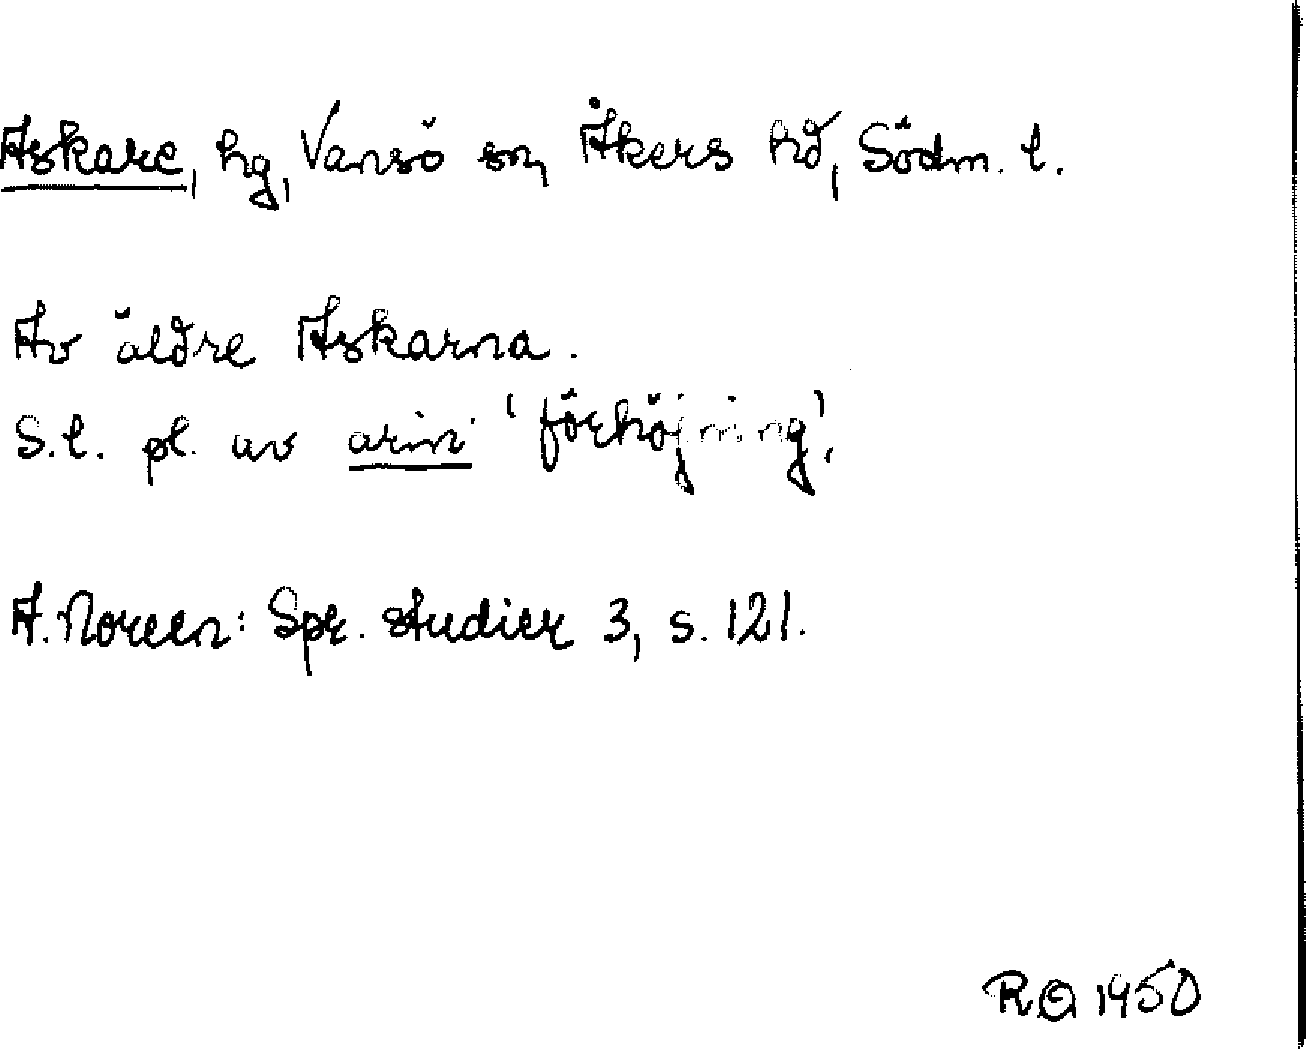 Askare, hg, Vansö sn, Åkers hd, Södm. l.
Av äldre Askarna.
S.l. pl. av arin 'förhöjning'.
A. Noreen: Spr. studier 3, s. 121.
RO 1950